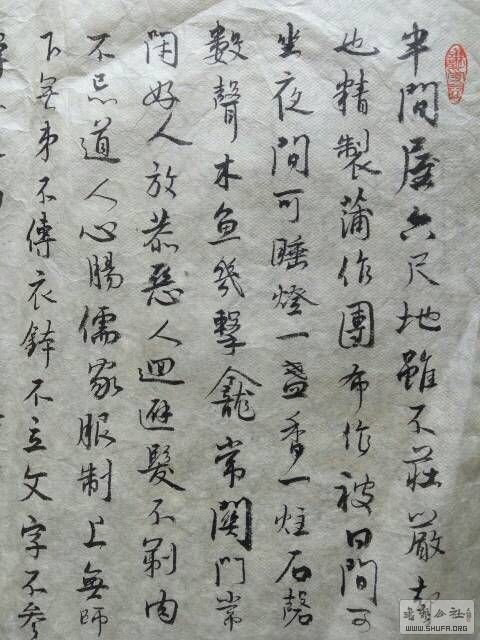 半間屋六尺地雖不莊嚴却
也精製蒲作團布作被日間可
坐夜間可睡燈一盞香一炷石磬
數聲木魚幾擊龕常關門常
閉好人放恭惡人迴避髮不剃肉
不忌道人心腸儒家服制上無師
下無弟不傳衣鉢不立文字不參
書法公社
WWW.SHUFA.ORG